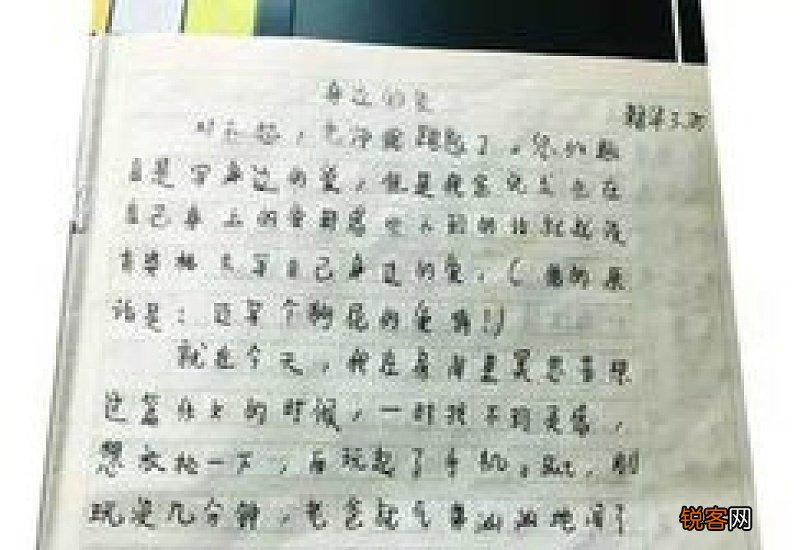 身边的爱
对不起，老师我跑题了，你的题
目是写身边的爱，但是我实说发生在
自己身上的爱都感觉不到的话就
自己身边的爱，（的原
话是：还写个狗屁的爱啊！）
就在今天，我在房间里冥思苦想
这篇作文的时候，一时找不到灵感，
想放松一下，而玩起了手机。But，刚
玩没几分钟，老爸就气汹汹地闯了
锐客网